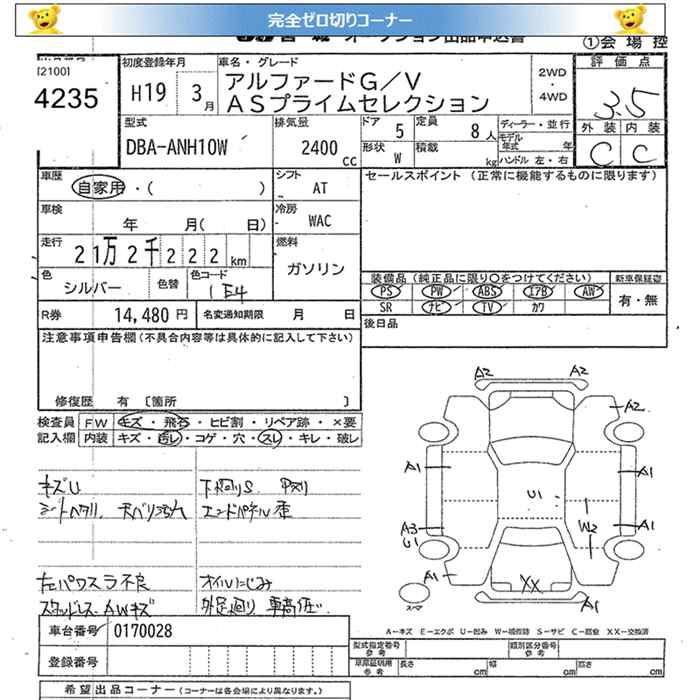 完全ゼロ切りコーナー
①会場控
[2100]
4235
初度登録年月
H19 3月
車名・グレード
アルファードG/V
ASプライムセレクション
2WD
・
4WD
評価点
3.5
外装 内装
C C
型式
DBA-ANH10W
排気量
2400cc
ドア 5
形状 W
定員 8人
積載 kg
ディーラー・並行
モデル年式 年
ハンドル 左・右
車歴
自家用・( )
シフト
AT
車検
年 月( 日)
冷房
WAC
走行
21万2千222km
燃料
ガソリン
色
シルバー
色替
色コード
1E4
R券 14,480円
名変通知期限 月 日
セールスポイント(正常に機能するものに限ります)
装備品(純正品に限り○をつけてください)
新車保証書
PS PW ABS エアB AW
SR ナビ TV カワ
有・無
後日品
注意事項申告欄(不具合内容等は具体的に記入して下さい)
修復歴 有 〔箇所 〕
検査員記入欄
FW キズ・飛石・ヒビ割・リペア跡・×要
内装 キズ・汚レ・コゲ・穴・スレ・キレ・破レ
キズU
下廻りS
シートヘタリ
エンドパネル歪
左パワスラ不良
オイルにじみ
スタッドレス AWキズ
外足廻り 車高低
A2 A2
A2
A1 A1
U1
A3 U1
W2 A1
A1
XX
A1
スペア
A-キズ E-エクボ U-凹み W-補修跡 S-サビ C-腐蝕 XX-交換済
車台番号 0170028
登録番号
型式指定番号 参考
類別区分番号 参考
車庫証明用 参考
長さ cm
幅 cm
高さ cm
希望出品コーナー(コーナーは各会場により異なります。)